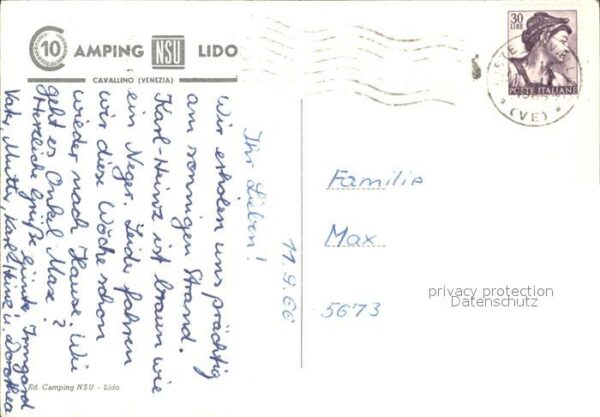 C 10 AMPING NSU LIDO
CAVALLINO (VENEZIA)
30
LIRE
POSTE ITALIANE
(VE)
11.9.66
Ihr Lieben!
Wir erholen uns prächtig
am sonnigen Strand.
Karl-Heinz ist braun wie
ein Neger. Leider fahren
wir diese Woche schon
wieder nach Hause. Wie
geht es Onkel Max?
Herzliche Grüße Günter, Irmgard
Vater, Mutter, Karl Heinz u. Dorothea
Familie
Max
5673
privacy protection
Datenschutz
Ed. Camping NSU - Lido